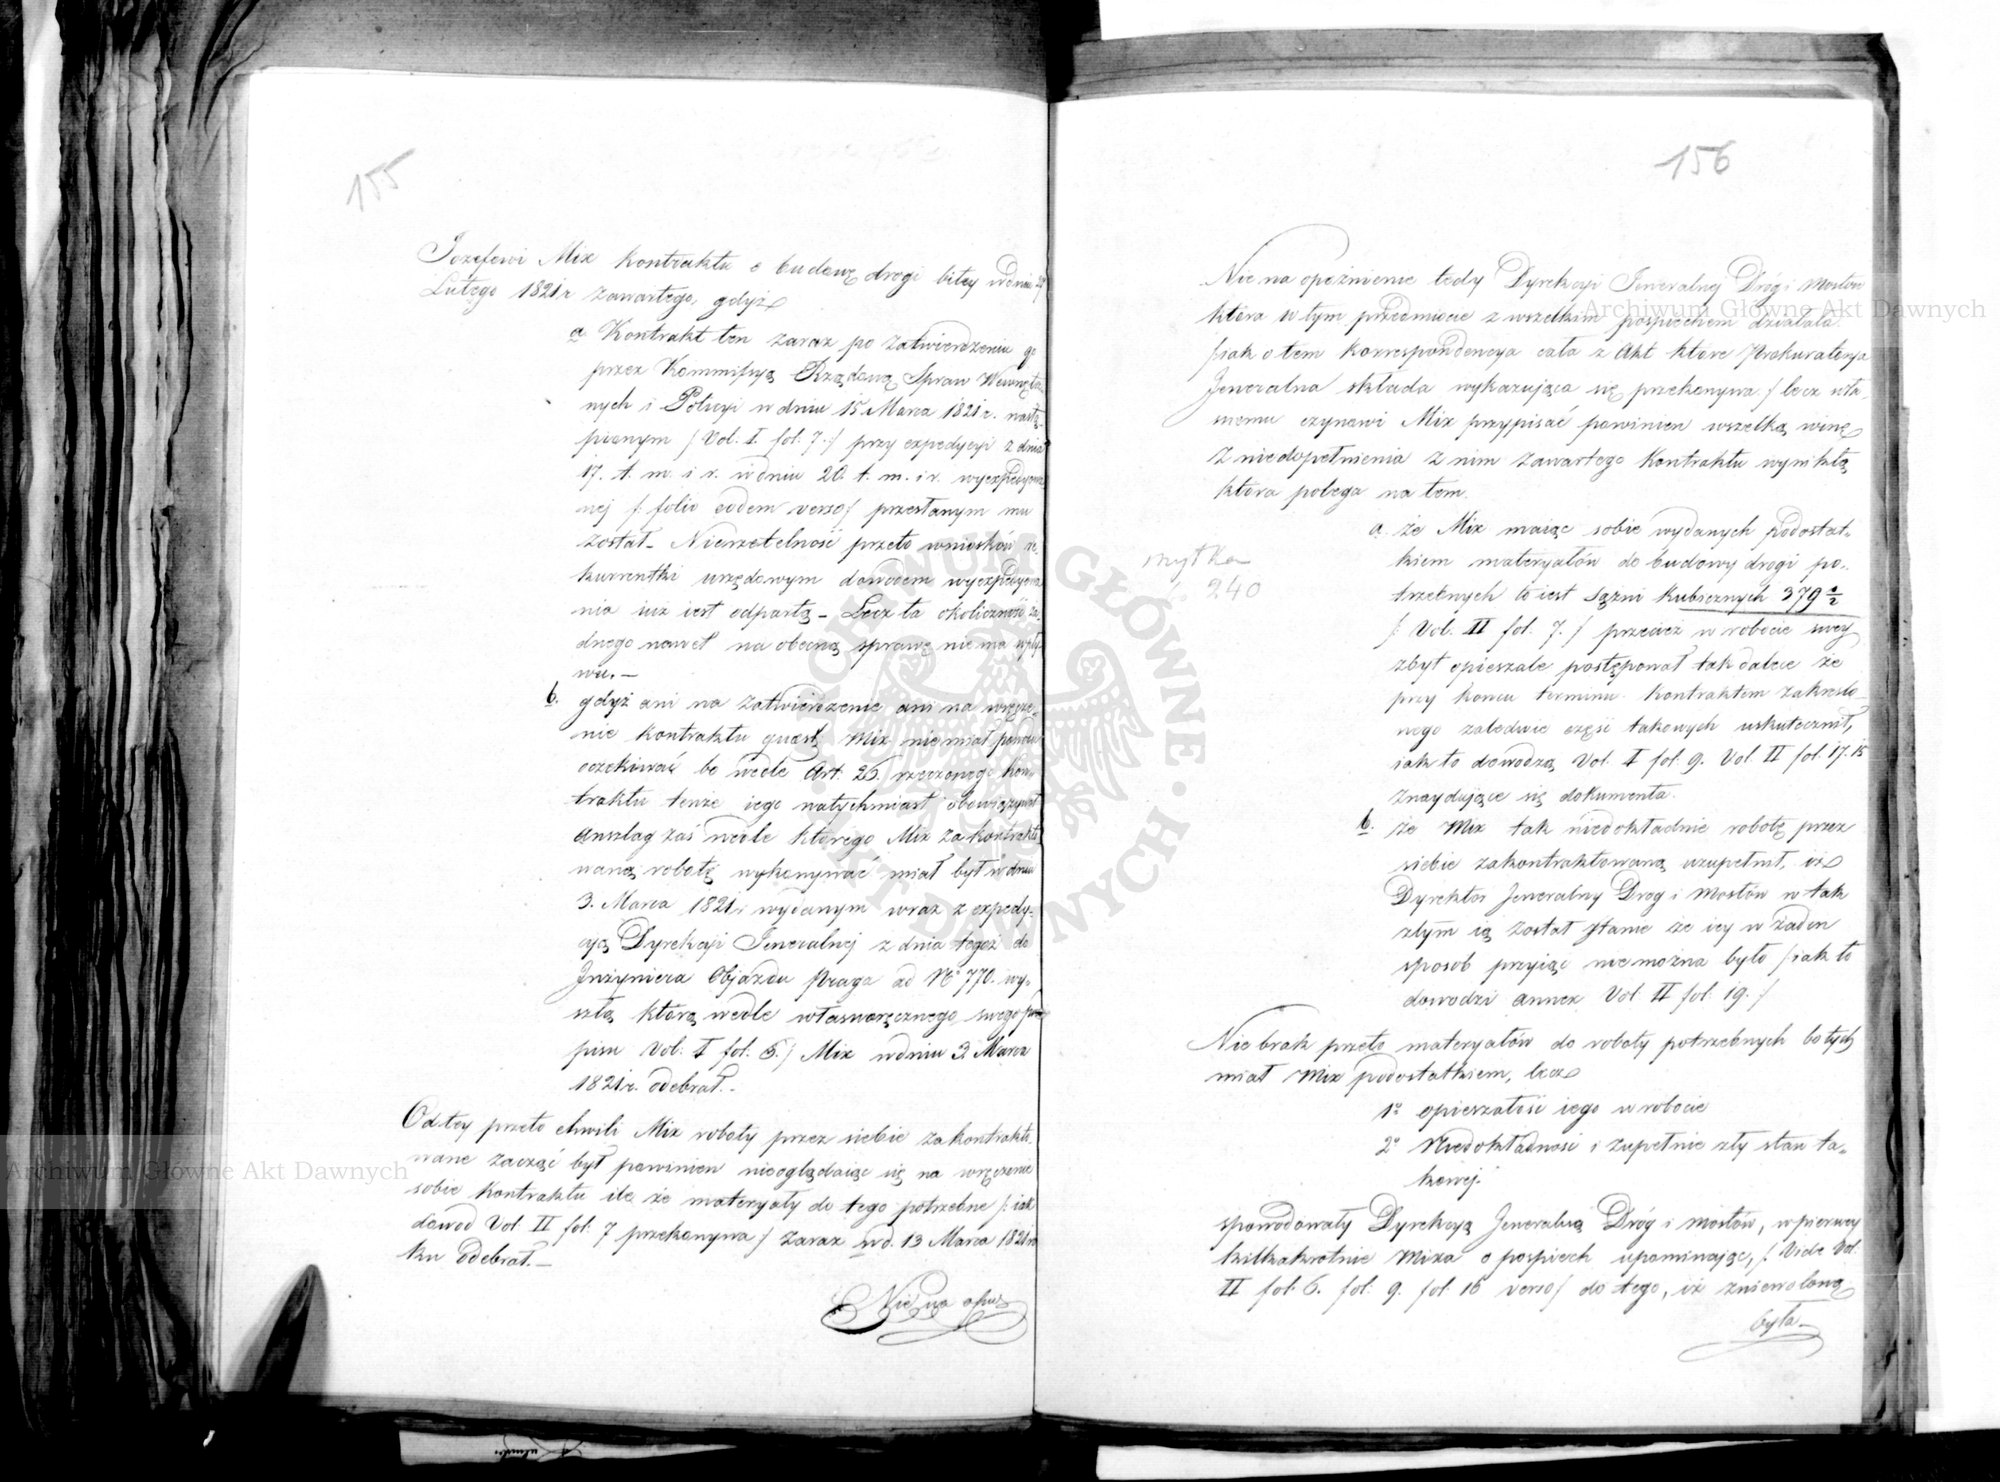 155
Jozefowi Mix kontraktu o budowę drogi bitey w dniu 27
Lutego 1821 r. zawartego, gdyż
a. Kontrakt ten zaraz po zatwierdzeniu go
przez Kommissyą Rządową Spraw Wewnętrz
nych i Policyi w dniu 15 Marca 1821 r. nastą-
pionym /: Vol: I fol: 7. :/ przy expedycyi z dnia
17. t. m. i r. w dniu 20. t. m. i r. wyexpedyowa
nej /: folio eodem verso :/ przesłanym mu
został. – Nierzetelność przeto wniosków re-
kurrentki urzędowym dowodem wyexpedyowa
nia iuż iest odpartą – Lecz ta okoliczność ża-
dnego nawet na obecną sprawę niema wpły-
wu. –
b. gdyż ani na zatwierdzenie ani na wręcze-
nie kontraktu quaest: Mix niemiał powodu
oczekiwać bo wedle Art: 26. rzeczonego kon-
traktu tenże iego natychmiast obowiązywał
anszlag zaś wedle którego Mix zakontrakto
waną robotę wykonywać miał był w dniu
3. Marca 1821 r. wydanym wraz z expedy-
cyą Dyrekcji Jeneralnej z dnia tegoż do
Inżyniera Objazdu Praga ad No 770. wy-
szłą którą wedle własnoręcznego swego pod
pisu Vol: I fol: 5. :/ Mix w dniu 3 Marca
1821 r. odebrał. –
Od tey przeto chwili Mix roboty przez siebie zakontrakto
wane zacząć był powinien nieoglądaiąc się na wręczenie
sobie kontraktu ile że materyały do tego potrzebne /: iak
dowod Vol: II fol: 7 przekonywa :/ zaraz w d. 13 Marca 1821 ro
ku odebrał. –
Nie na opuź
156
Nie na opoźnienie tedy Dyrekcyi Jeneralney Dróg i Mostów
która w tym przedmiocie z wszelkim pospiechem działała
/: iak o tem korrespondencya cała z Akt które Prokuratorya
Jeneralna składa wykazująca się przekonywa :/ lecz wła-
snemu czynowi Mix przypisać powinien wszelką winę
z niedopełnienia z nim zawartego kontraktu wynikłą
która polega na tem.
a. że Mix maiąc sobie wydanych podostat-
kiem materyałów do budowy drogi po-
trzebnych to iest sązni kubicznych 379 1/2
/: Vol. II fol. 7. :/ przecież w robocie swey
zbyt opieszale postępował tak dalece że
przy końcu terminu kontraktem zakreślo-
nego zaledwie część takowych uskutecznił,
iak to dowodzą Vol. I fol. 9. Vol. II fol. 17. 15
znayduiące się dokumenta.
mytka
240
b. że Mix tak niedokładnie robotę przez
siebie zakontraktowaną uzupełnił, iż
Dyrektor Jeneralny Dróg i Mostów w tak
złym ią został stanie że iey w żaden
sposob przyiąć nie można było /: iak to
dowodzi annex Vol: II fol: 19. :/
Nie brak przeto materyałów do roboty potrzebnych bo tych
miał Mix podostatkiem, lecz
1o opieszałość iego w robocie
2o Niedokładność i zupełnie zły stan ta-
kowej.
spowodowały Dyrekcyą Jeneralną Dróg i Mostów, w pierwey
kilkakrotnie Mixa o pospiech upominając, /: Vide Vol:
II fol: 6. fol: 9. fol: 16 verso :/ do tego, iż zniewoloną
była –